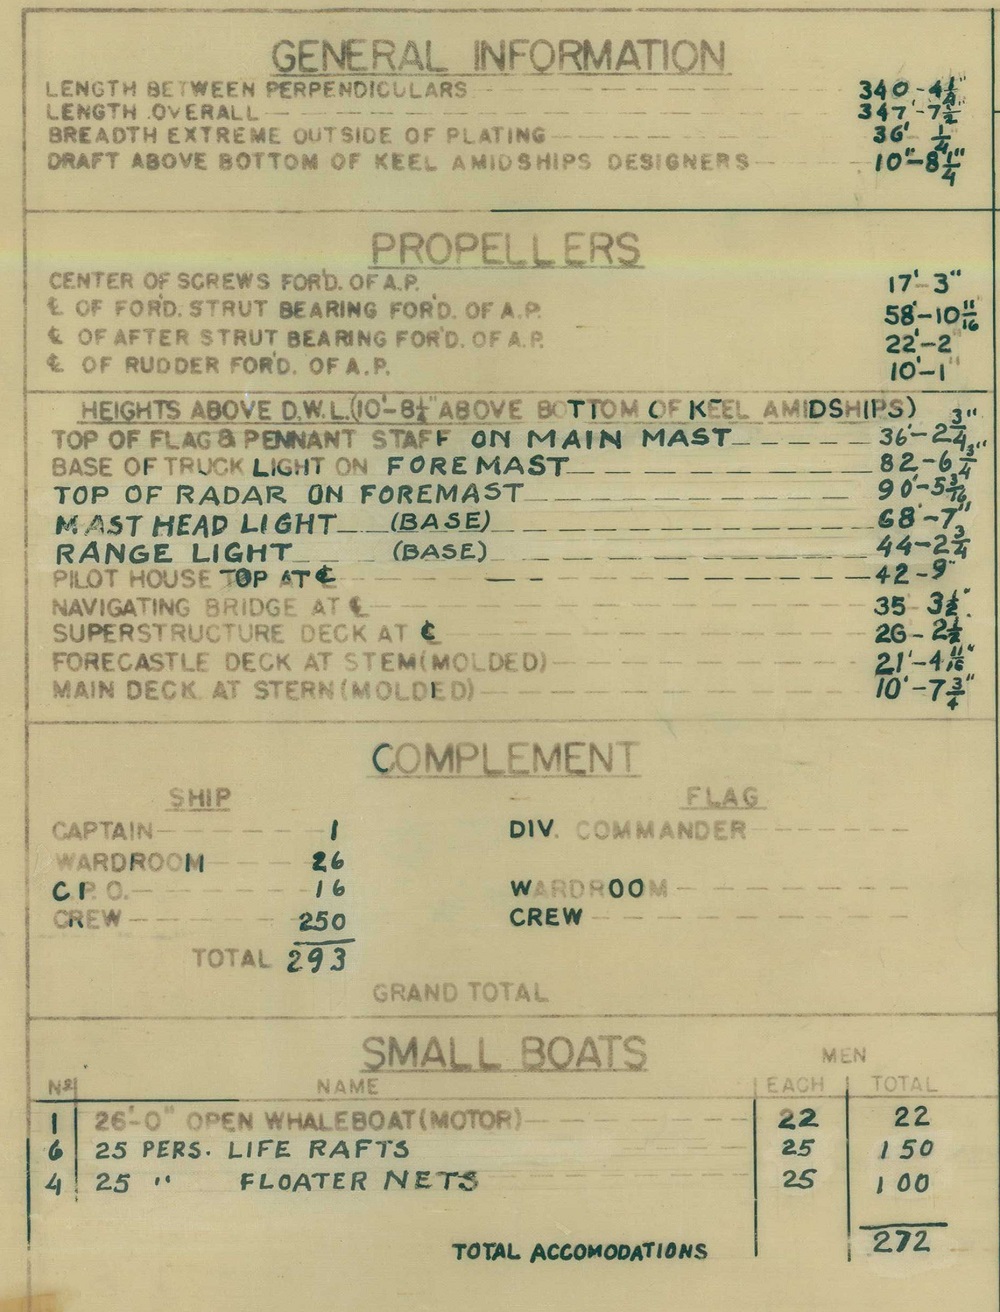 GENERAL INFORMATION
LENGTH BETWEEN PERPENDICULARS 340-4¼"
LENGTH OVERALL 347'-7½"
BREADTH EXTREME OUTSIDE OF PLATING 36' ¼
DRAFT ABOVE BOTTOM OF KEEL AMIDSHIPS DESIGNERS 10"-8¼"
PROPELLERS
CENTER OF SCREWS FOR'D. OF A.P. 17'-3"
℄ OF FOR'D. STRUT BEARING FOR'D. OF A.P. 58'-10 11/16"
℄ OF AFTER STRUT BEARING FOR'D. OF A.P. 22'-2"
℄ OF RUDDER FOR'D. OF A.P. 10'-1"
HEIGHTS ABOVE D.W.L.(10'-8¼" ABOVE BOTTOM OF KEEL AMIDSHIPS)
TOP OF FLAG & PENNANT STAFF ON MAIN MAST 36'-2¾"
BASE OF TRUCK LIGHT ON FOREMAST 82-6¾"
TOP OF RADAR ON FOREMAST 90'-5 3/16
MAST HEAD LIGHT (BASE) 68'-7"
RANGE LIGHT (BASE) 44-2¾
PILOT HOUSE TOP AT ℄ 42-9"
NAVIGATING BRIDGE AT ℄ 35 3½"
SUPERSTRUCTURE DECK AT ℄ 26-2½
FORECASTLE DECK AT STEM(MOLDED) 21'-4 11/16"
MAIN DECK AT STERN(MOLDED) 10'-7¾"
COMPLEMENT
SHIP FLAG
CAPTAIN 1 DIV. COMMANDER
WARDROOM 26
C.P.O. 16 WARDROOM
CREW 250 CREW
TOTAL 293
GRAND TOTAL
SMALL BOATS MEN
Nº NAME EACH TOTAL
1 26'-0" OPEN WHALEBOAT(MOTOR) 22 22
6 25 PERS. LIFE RAFTS 25 150
4 25 " FLOATER NETS 25 100
272
TOTAL ACCOMODATIONS